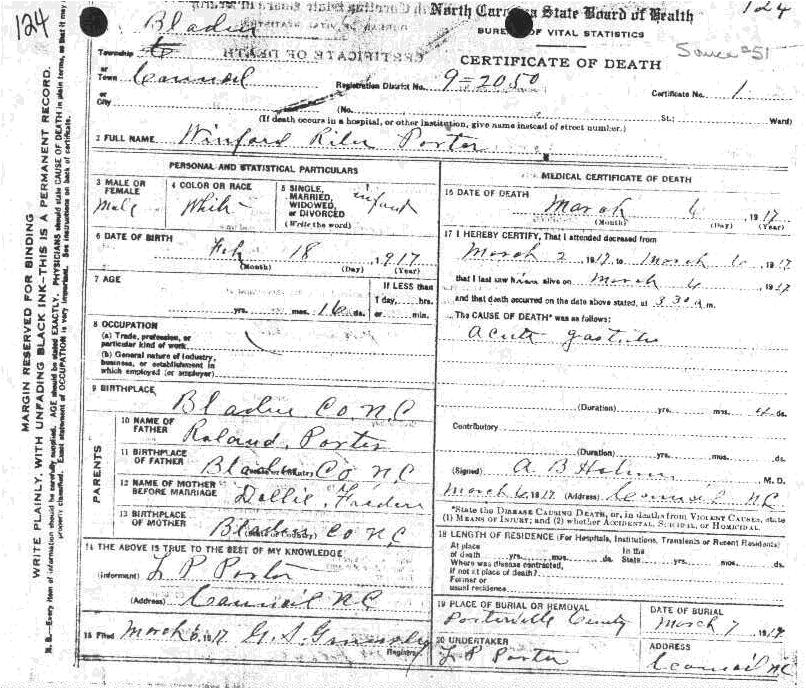 124
North Carolina State Board of Health
124
BUREAU OF VITAL STATISTICS
Bladen
CERTIFICATE OF DEATH
Source #51
Township
or
Town Council
Registration District No. 9=2050
Certificate No. 1
or
City
(No.
St.;
Ward)
(If death occurs in a hospital, or other institution, give name instead of street number.)
2 FULL NAME Winford Riley Porter
MARGIN RESERVED FOR BINDING
WRITE PLAINLY, WITH UNFADING BLACK INK—THIS IS A PERMANENT RECORD.
N. B.—Every item of information should be carefully supplied. AGE should be stated EXACTLY. PHYSICIANS should state CAUSE OF DEATH in plain terms, so that it may
properly classified. Exact statement of OCCUPATION is very important. See instructions on back of certificate.
PERSONAL AND STATISTICAL PARTICULARS
3 MALE OR
FEMALE
Male
4 COLOR OR RACE
White
5 SINGLE,
MARRIED,
WIDOWED,
or DIVORCED
(Write the word)
infant
6 DATE OF BIRTH
Feb 18 1917
(Month) (Day) (Year)
7 AGE
yrs. mos. 16 ds.
If LESS than
1 day, hrs.
or min.
8 OCCUPATION
(a) Trade, profession, or
particular kind of work
(b) General nature of industry,
business, or establishment in
which employed (or employer)
9 BIRTHPLACE
Bladen Co NC
PARENTS
10 NAME OF
FATHER
Roland Porter
11 BIRTHPLACE
OF FATHER
Bladen Co NC
12 NAME OF MOTHER
BEFORE MARRIAGE
Dollie
13 BIRTHPLACE
OF MOTHER
Bladen Co NC
14 THE ABOVE IS TRUE TO THE BEST OF MY KNOWLEDGE
(Informant) L P Porter
(Address) Council NC
15 Filed March 6, 1917 G. S.
Registrar
MEDICAL CERTIFICATE OF DEATH
16 DATE OF DEATH
March 6 1917
(Month) (Day) (Year)
17 I HEREBY CERTIFY, That I attended deceased from
March 2 1917, to March 6, 1917
that I last saw him alive on March 4 1917
and that death occurred on the date above stated, at 3 30 a m.
The CAUSE OF DEATH* was as follows:
Acute gastritis
(Duration) yrs. mos. 4 ds.
Contributory
(Duration) yrs. mos. ds.
(Signed) A. B. M. D.
March 6, 1917 (Address) Council NC
*State the DISEASE CAUSING DEATH, or, in deaths from VIOLENT CAUSES, state
(1) MEANS OF INJURY; and (2) whether ACCIDENTAL, SUICIDAL, or HOMICIDAL
18 LENGTH OF RESIDENCE (For Hospitals, Institutions, Transients or Recent Residents)
At place
of death yrs. mos. ds.
In the
State yrs. mos. ds.
Where was disease contracted,
if not at place of death?
Former or
usual residence
19 PLACE OF BURIAL OR REMOVAL
Porterville
DATE OF BURIAL
March 7, 1917
20 UNDERTAKER
L P Porter
ADDRESS
Council NC